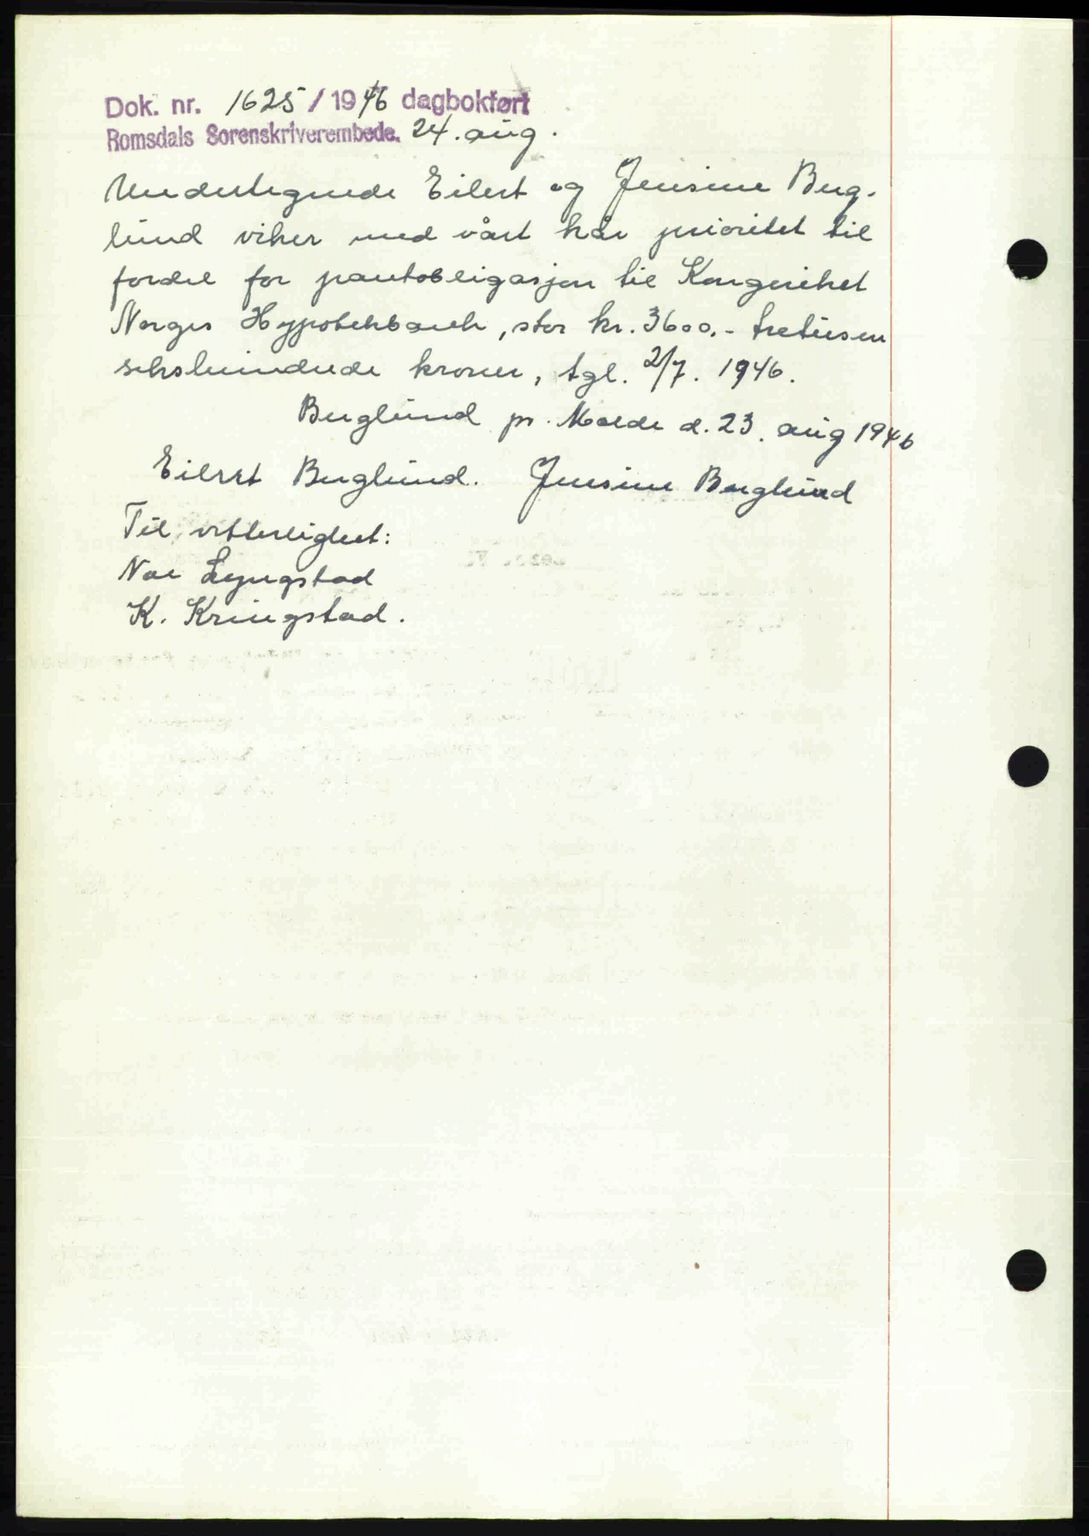 Dok. nr. 1625 / 1946 dagbokført
Romsdals Sorenskriverembede. 24. aug.
Undertegnede Eilert og Jensine Berg-
lund viker med vårt kår prioritet til
fordel for pantobligasjon til Kongeriket
Norges Hypotekbank, stor kr. 3600.- tretusen
sekshundrede kroner, tgl. 2/7. 1946.
Berglund pr. Molde d. 23. aug 1946
Eilert Berglund. Jensine Berglund
Til vitterlighet:
Lyngstad
K. Kringstad.